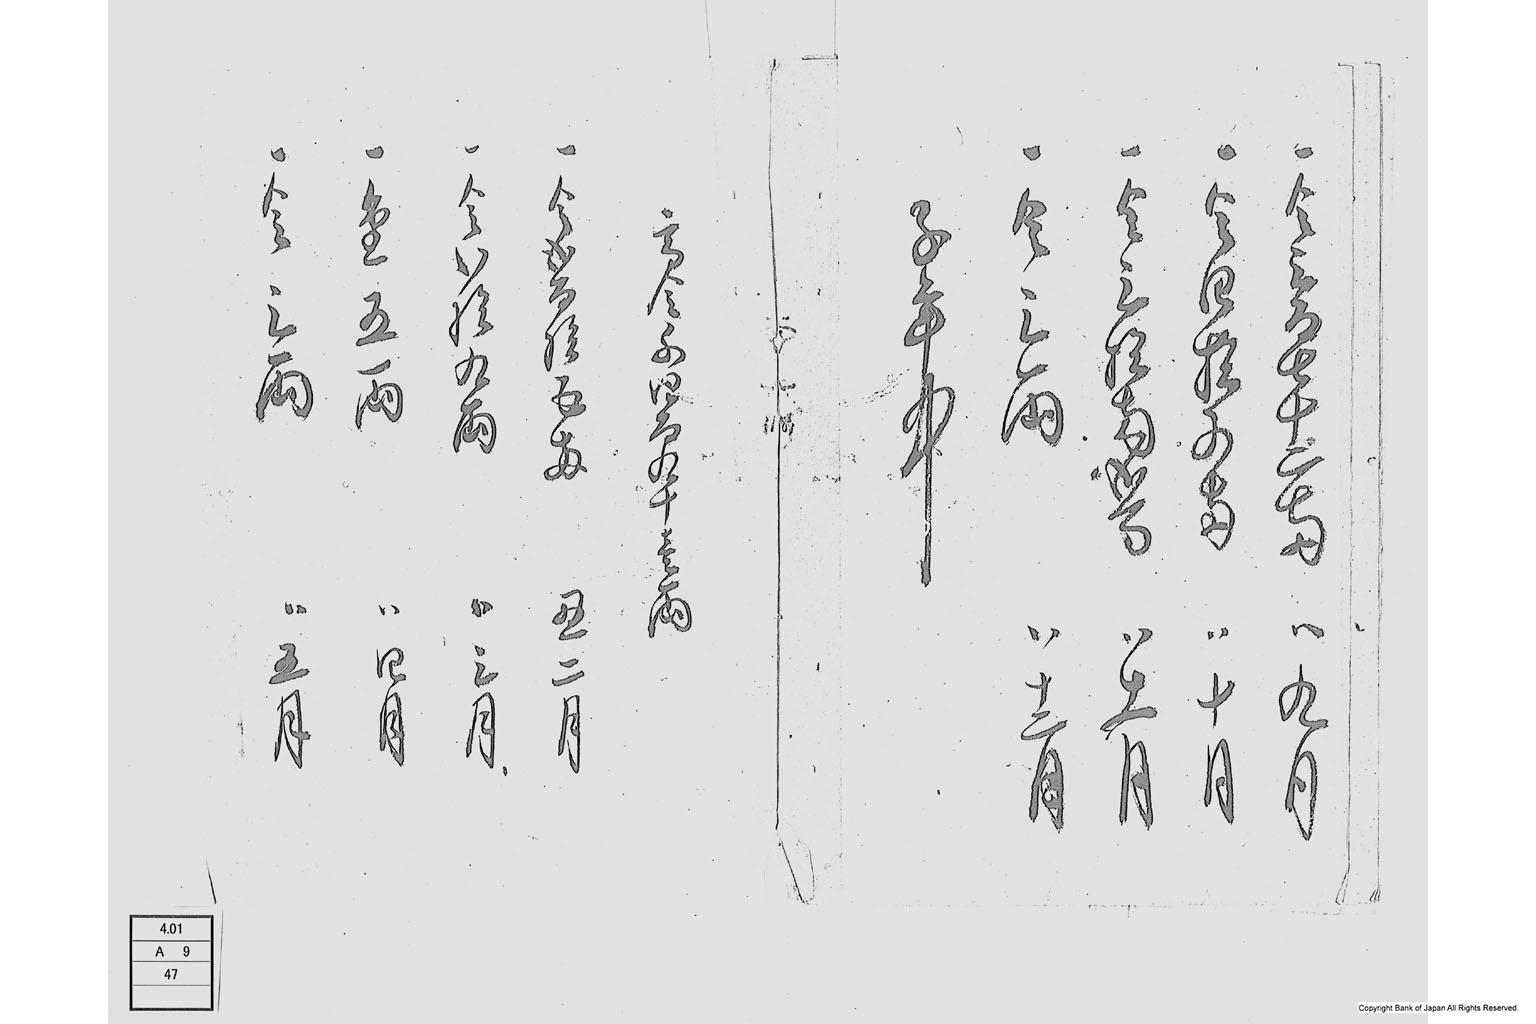 一金三百七十二両　〃九月
一金四拾両　〃十月
一金三拾両　〃十一月
一金三両　〃十二月
子年中
高金千四百九十壱両
一金弐百拾五両　丑二月
一金八拾九両　〃三月
一金五両　〃四月
一金三両　〃五月
4.01
A 9
47
Copyright Bank of Japan All Rights Reserved.